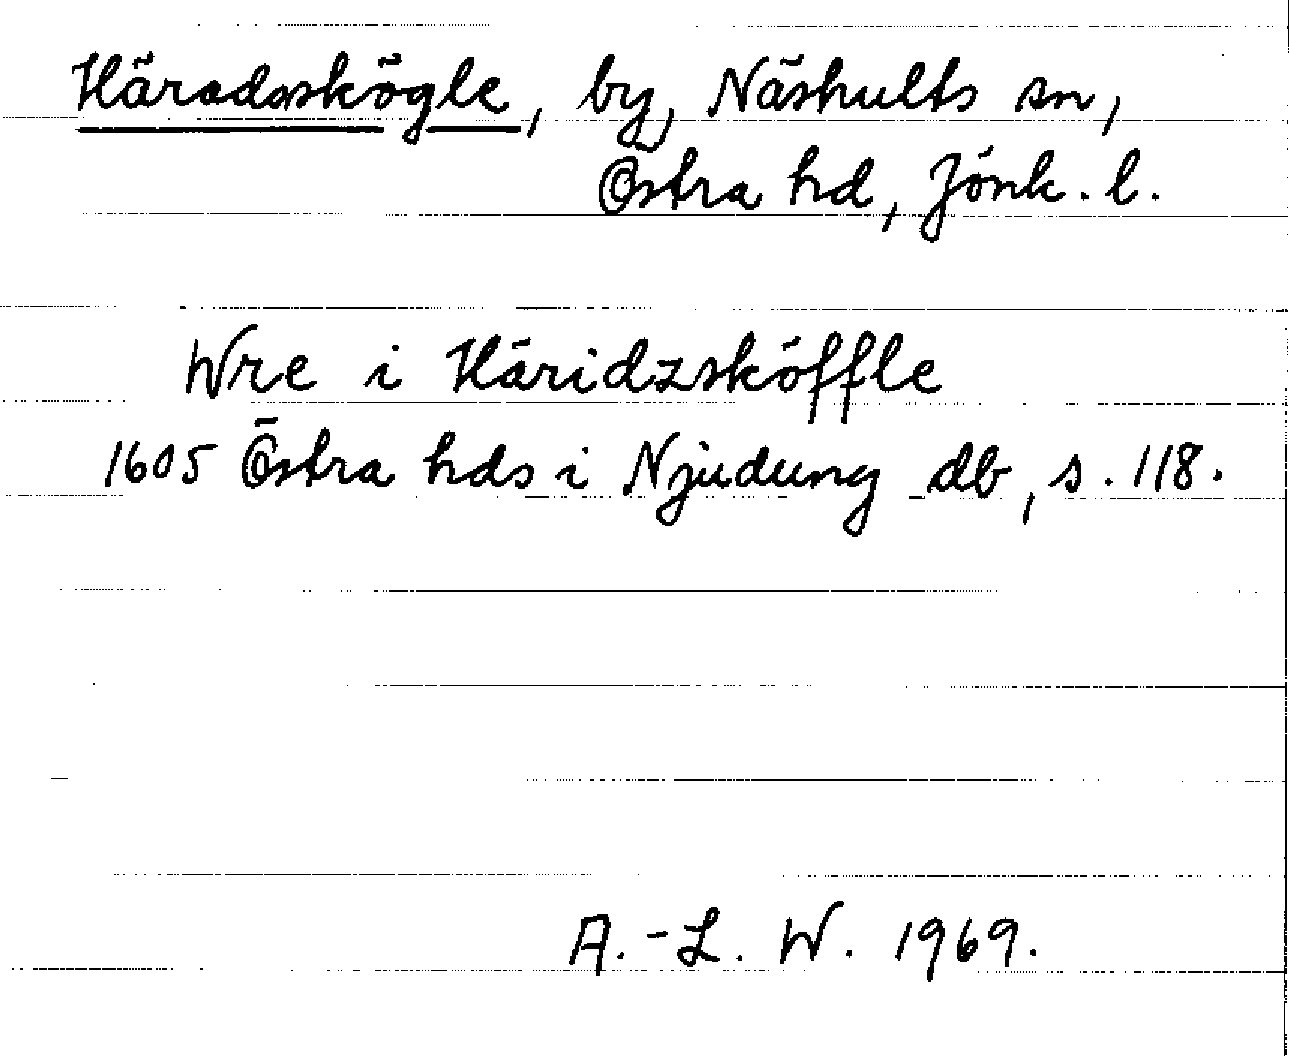 Häradsskögle, by, Näshults sn,
Östra hd, Jönk. l.
Wre i Häridzsköffle
1605 Östra hds i Njudung db, s. 118.
A.-L. W. 1969.